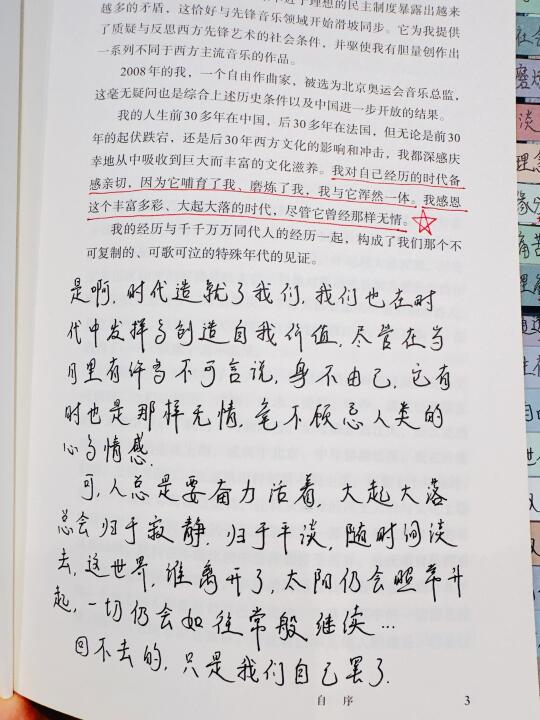 越多的矛盾，这恰好与先锋音乐领域开始滑坡同步。它为我提供
了质疑与反思西方先锋艺术的社会条件，并驱使我有胆量创作出
一系列不同于西方主流音乐的作品。
2008年的我，一个自由作曲家，被选为北京奥运会音乐总监，
这毫无疑问也是综合上述历史条件以及中国进一步开放的结果。
我的人生前30多年在中国，后30多年在法国，但无论是前30
年的起伏跌宕，还是后30年西方文化的影响和冲击，我都深感庆
幸地从中吸收到巨大而丰富的文化滋养。我对自己经历的时代备
感亲切，因为它哺育了我、磨炼了我，我与它浑然一体。我感恩
这个丰富多彩、大起大落的时代，尽管它曾经那样无情。
我的经历与千千万万同代人的经历一起，构成了我们那个不
可复制的、可歌可泣的特殊年代的见证。
是啊，时代造就了我们，我们也在时
代中发挥与创造自我价值，尽管在岁
月里有许多不可言说，身不由己，它有
时也是那样无情，毫不顾忌人类的
心与情感.
可，人总是要奋力活着，大起大落
总会归于寂静，归于平淡，随时间淡
去，这世界，谁离开了，太阳仍会照常升
起，一切仍会如往常般继续…
回不去的，只是我们自己罢了.
自 序
3
社会
磨炼
淡
理念
缘分
痛苦